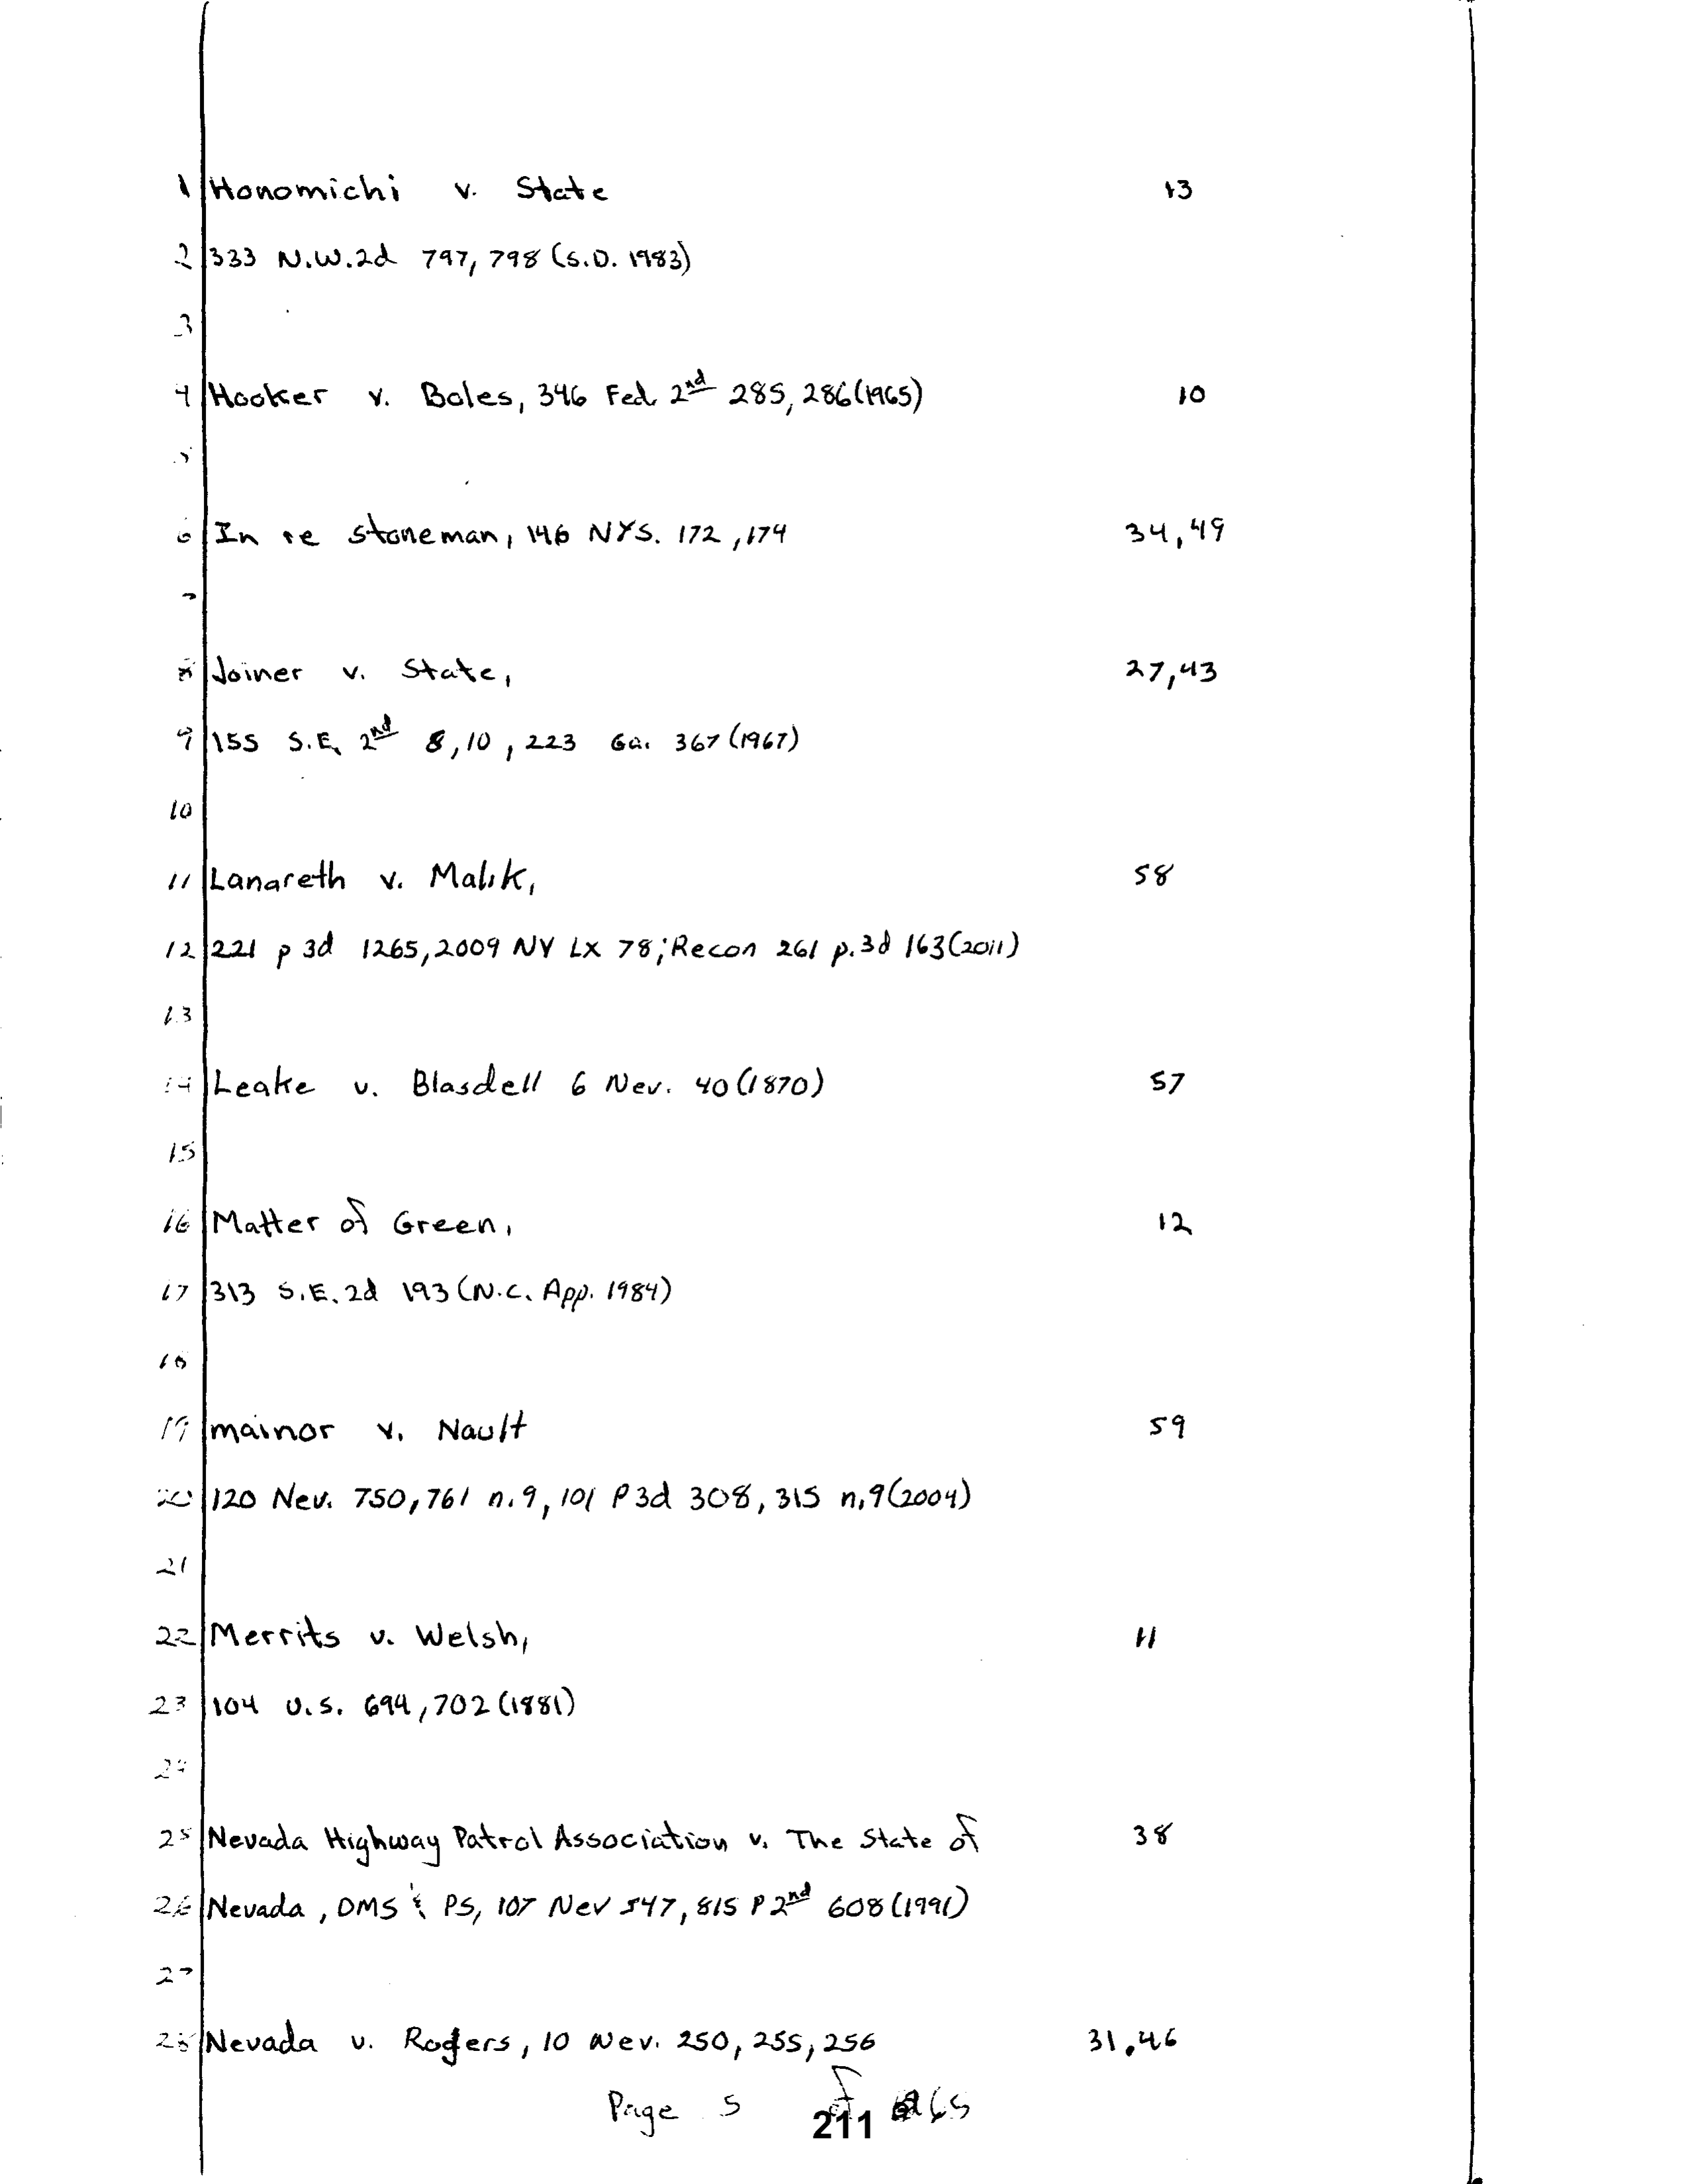 1 Honomichi v. State 13
2 333 N.W.2d 797, 798 (S.D. 1983)
3
4 Hooker v. Boles, 346 Fed. 2nd 285, 286 (1965) 10
5
6 In re stoneman, 146 NYS. 172, 174 34, 49
7
8 Joiner v. State, 27, 43
9 155 S.E. 2nd 8, 10, 223 Ga. 367 (1967)
10
11 Lanareth v. Malik, 58
12 221 p 3d 1265, 2009 NV LX 78; Recon 261 p. 3d 163 (2011)
13
14 Leake v. Blasdell 6 Nev. 40 (1870) 57
15
16 Matter of Green, 12
17 313 S.E. 2d 193 (N.C. App. 1984)
18
19 mainor v. Nault 59
20 120 Nev. 750, 761 n. 9, 101 P 3d 308, 315 n. 9 (2004)
21
22 Merrits v. Welsh, 11
23 104 U.S. 694, 702 (1881)
24
25 Nevada Highway Patrol Association v. The State of 38
26 Nevada, DMS & PS, 107 Nev 547, 815 P 2nd 608 (1991)
27
28 Nevada v. Rogers, 10 Nev. 250, 255, 256 31, 46
Page 5 of
211